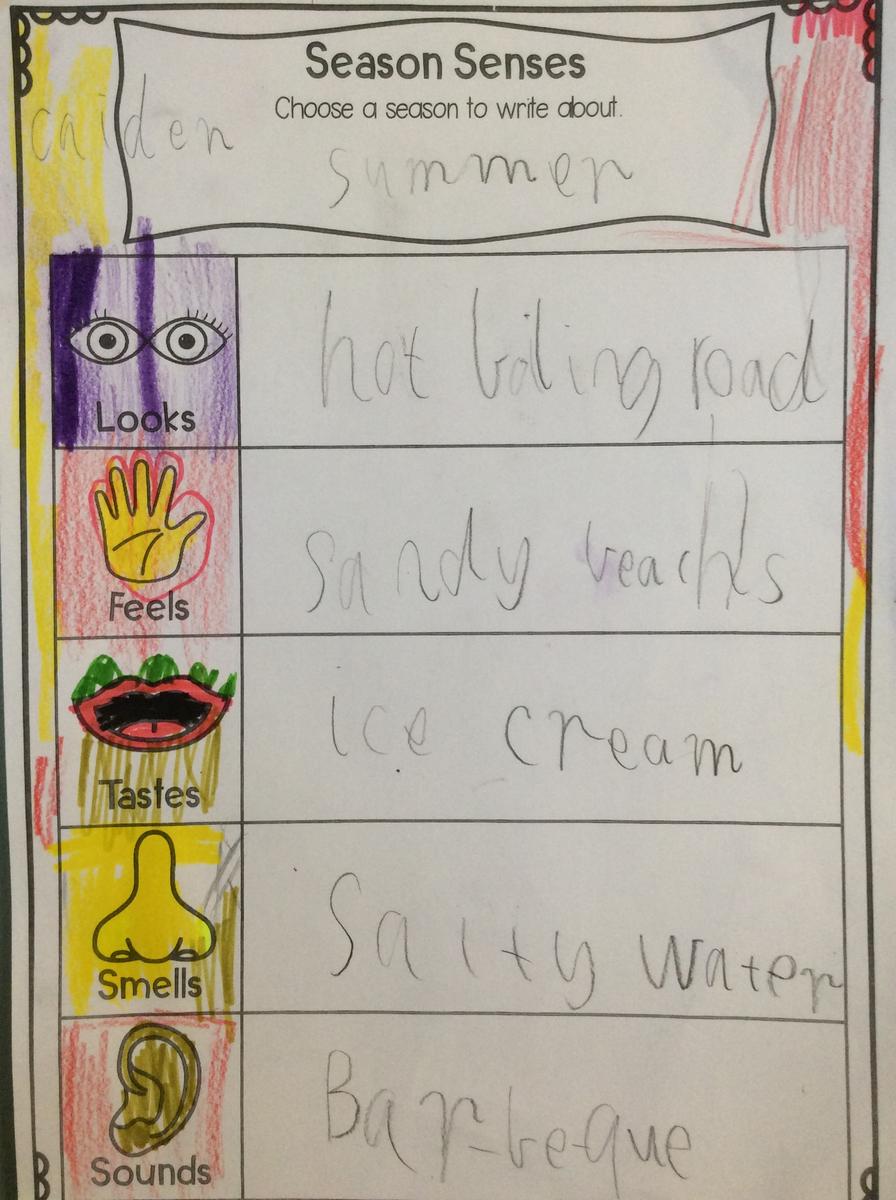 Season Senses
Choose a season to write about.
caiden
summer
Looks
hot boiling road
Feels
sandy beachs
Tastes
ice cream
Smells
Salty water
Sounds
Bar-be-que